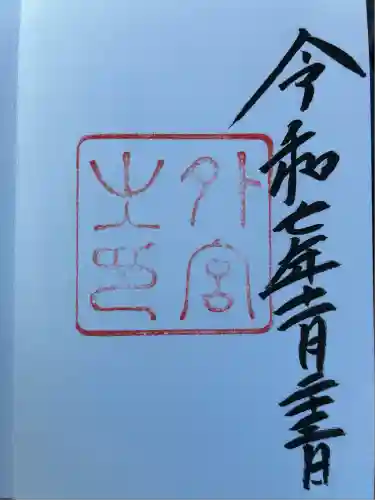 令和七年十一月二十三日
外宮
之印